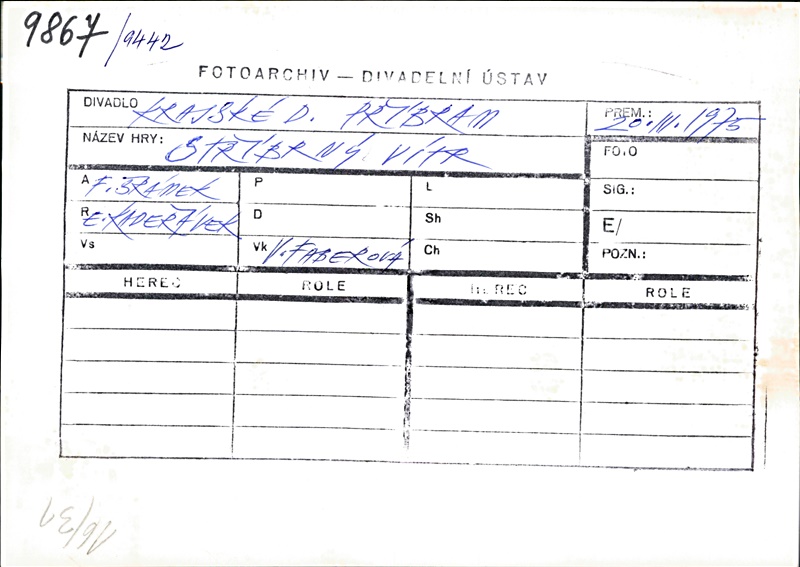 9867/9442
FOTOARCHIV — DIVADELNÍ ÚSTAV
DIVADLO KRAJSKÉ D. PŘÍBRAM PREM.: 20.III.1975
NÁZEV HRY: STŘÍBRNÝ VÍTR FOTO
A F. ŠRÁMEK P L SIG.:
R E. KADEŘÁVEK D Sh E/
Vs Vk V. FABEROVÁ Ch POZN.:
HEREC ROLE HEREC ROLE
16/31